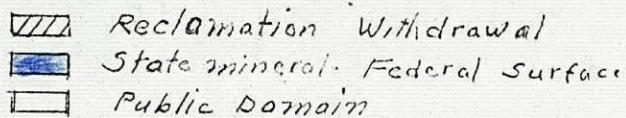 Reclamation Withdrawal
State mineral- Federal Surface
Public Domain